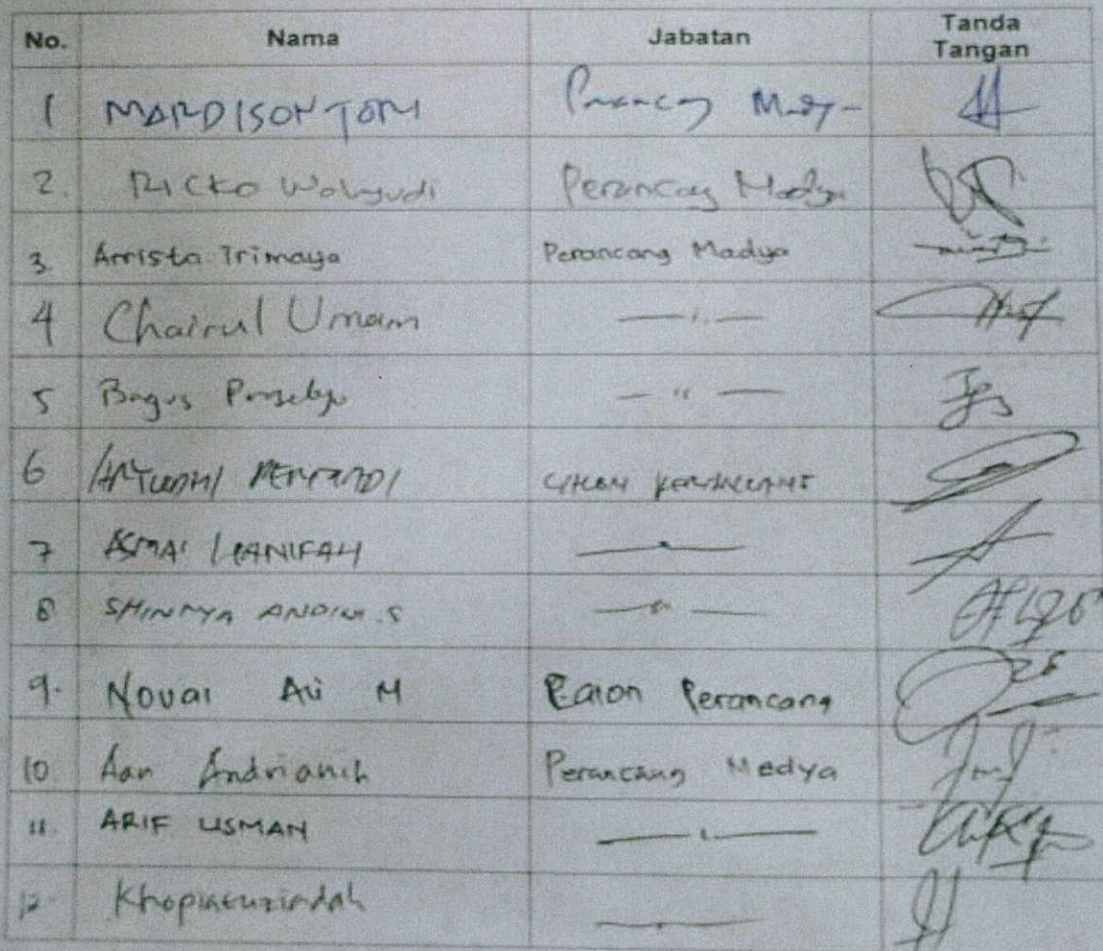 No. Nama Jabatan Tanda Tangan
1 MARDISON TORI Perancang Madya
2. Ricko Wahyudi Perancang Madya
3. Arrista Trimaya Perancang Madya
4 Chairul Umam — " —
5 Bagus Prasetyo — " —
6
7 ASMA' HANIFAH — " —
8 SHINTYA ANDINI. S — " —
9. Noval Ali M Calon Perancang
10. Aan Andrianih Perancang Madya
11. ARIF USMAN — " —
12 Khopiatuziadah — " —